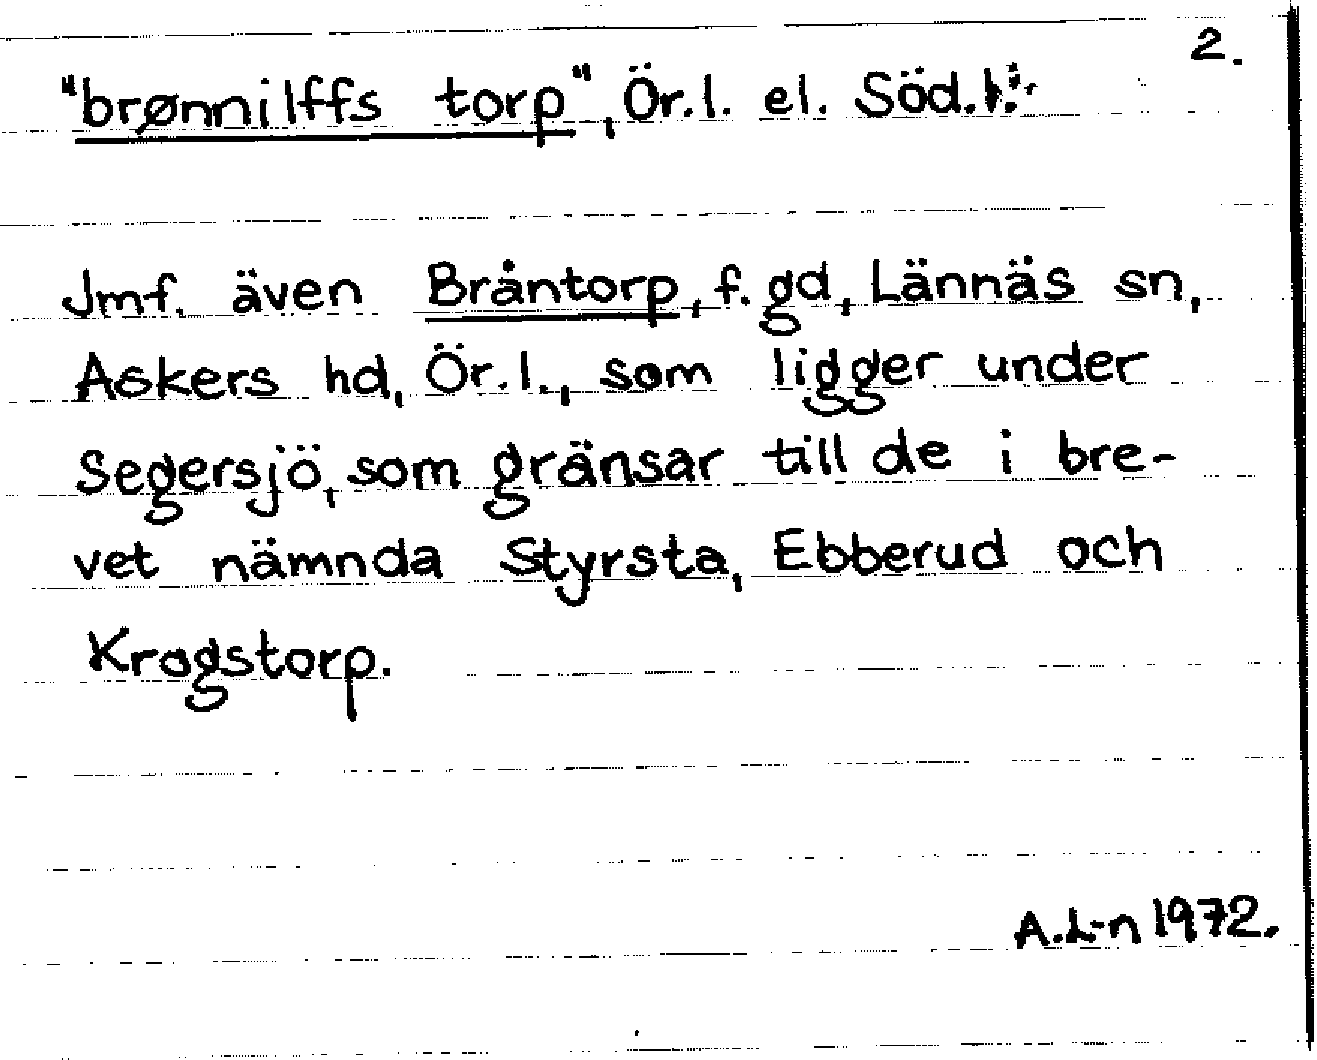 2.
"brønnilffs torp", Ör.l. el. Söd.l.
Jmf. även Bråntorp, f. gd, Lännäs sn,
Askers hd, Ör.l., som ligger under
Segersjö, som gränsar till de i bre-
vet nämnda Styrsta, Ebberud och
Krogstorp.
A.L-n 1972.